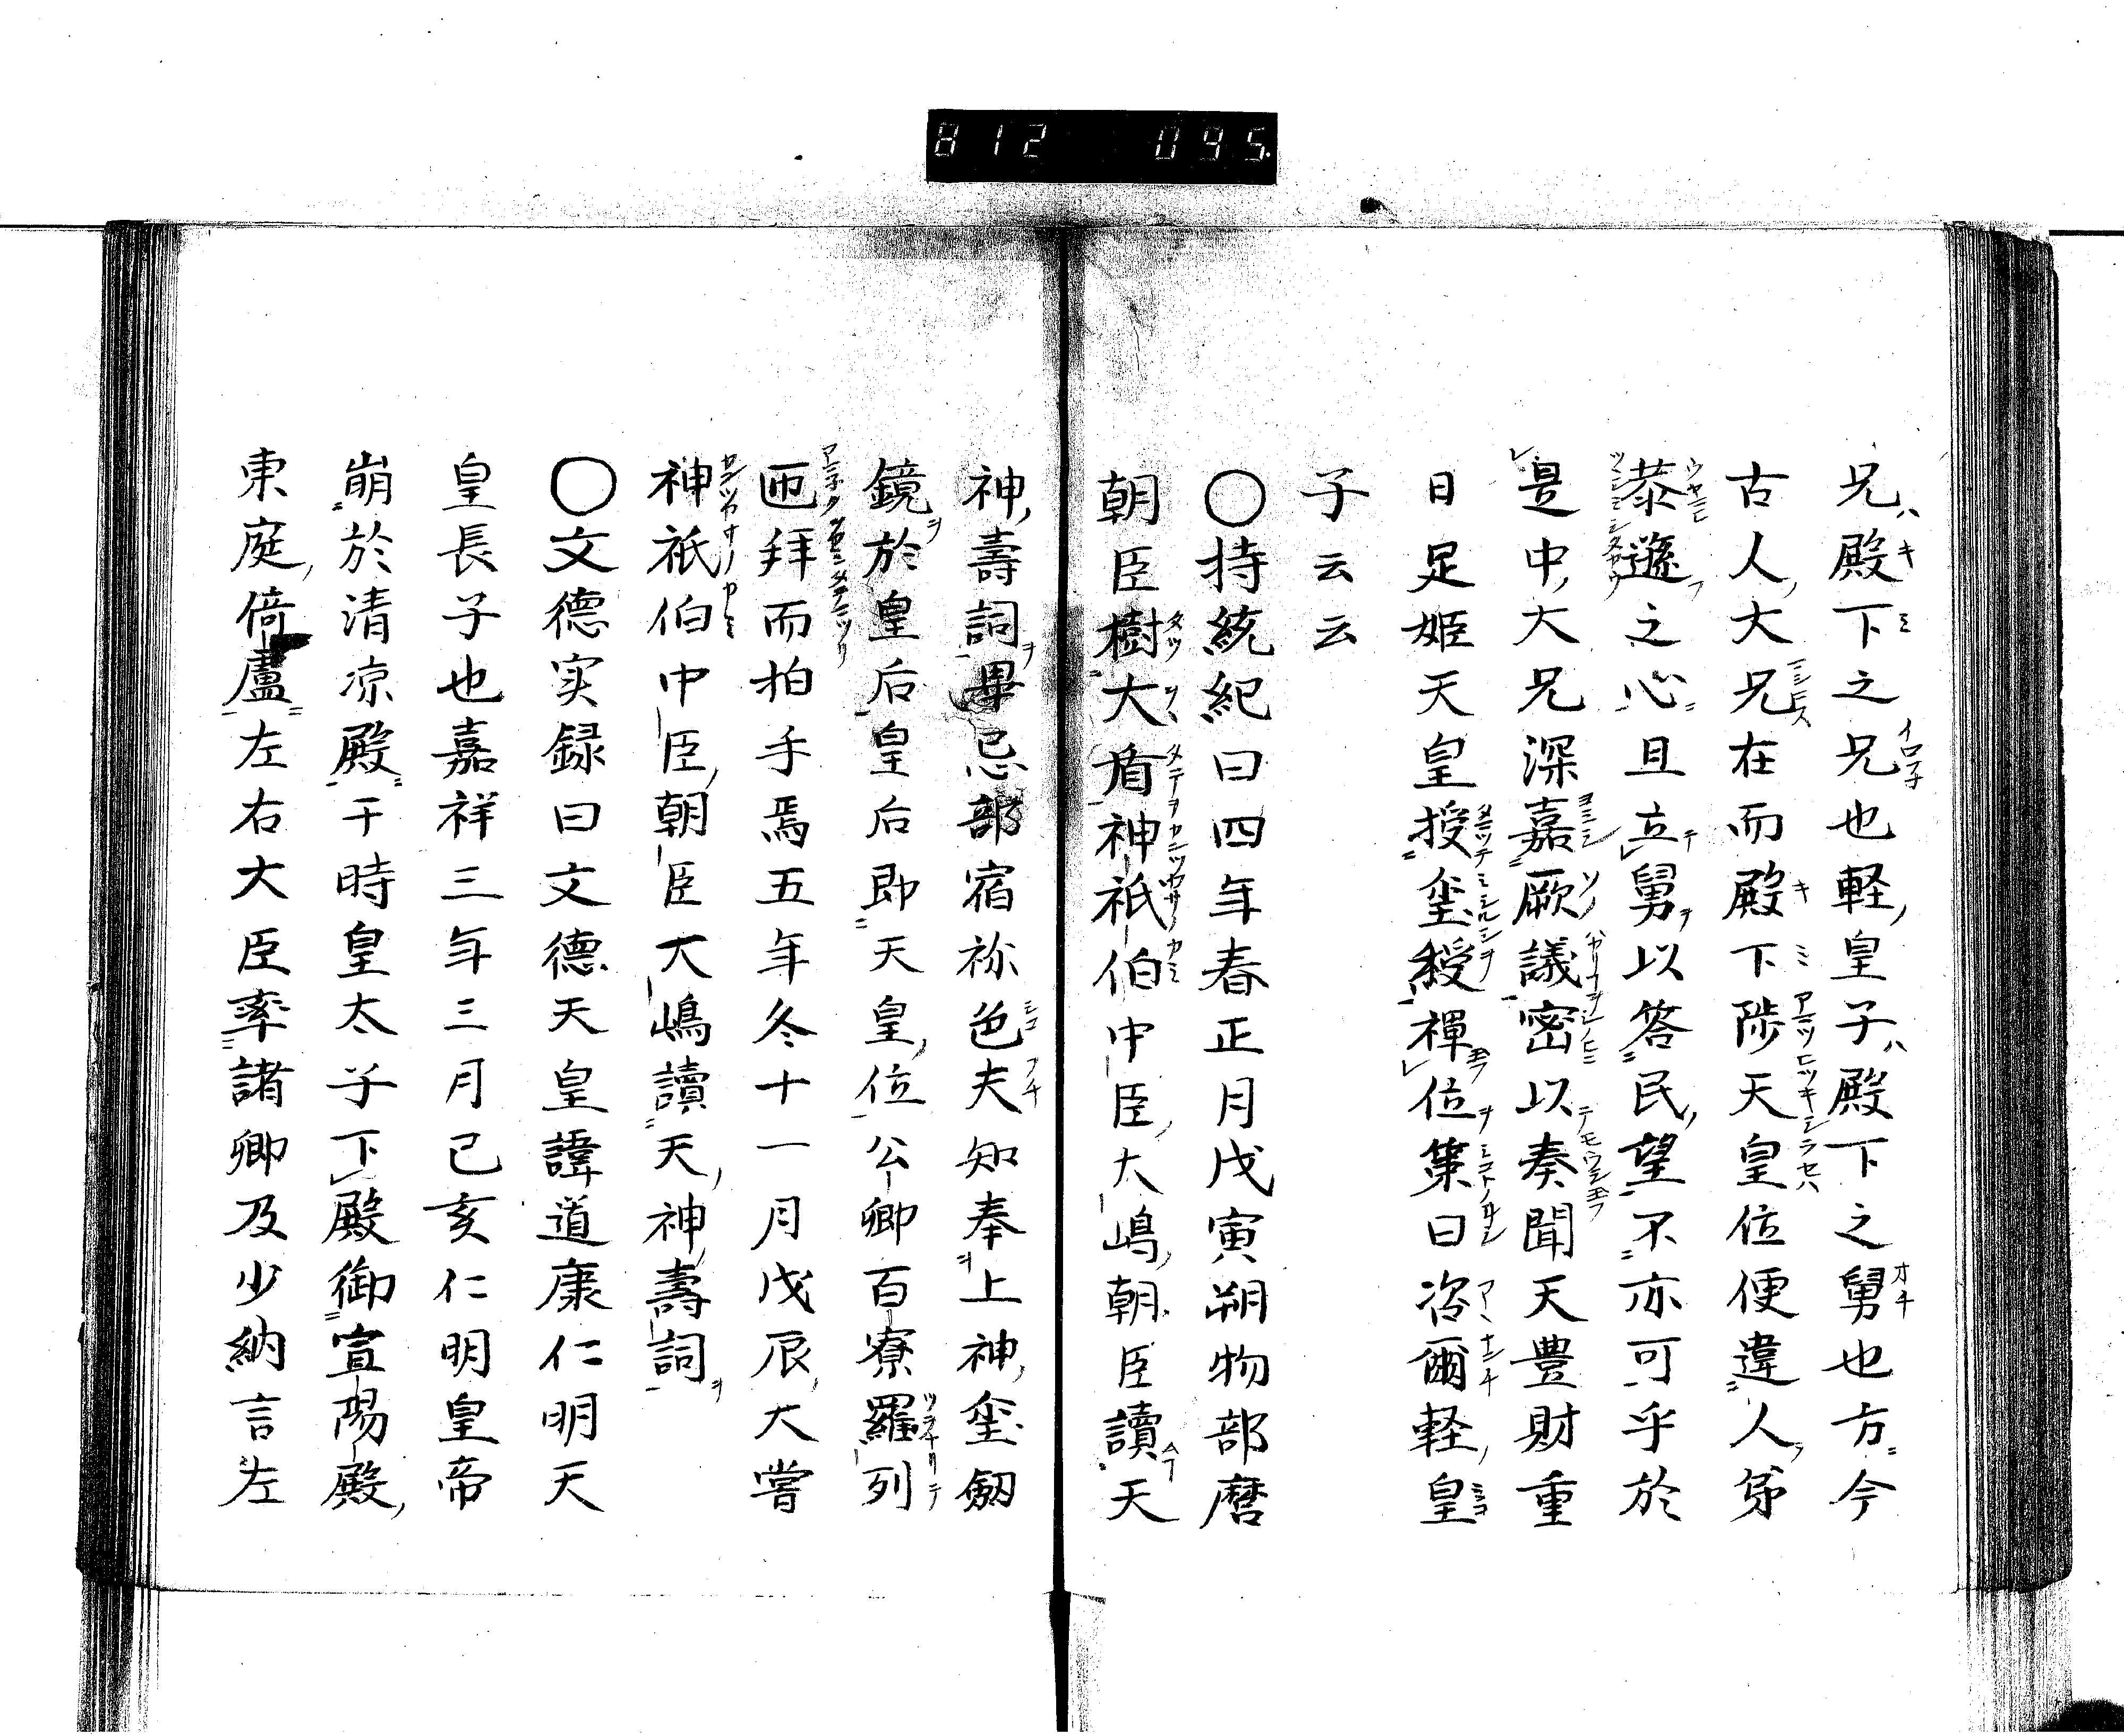 812 095.
兄殿下之兄也軽皇子殿下之舅也方今
古人大兄在而殿下陟天皇位便違人弟
恭遜之心且立舅以答民望不亦可乎於
是中大兄深嘉厥議密以奏聞天豊財重
日足姫天皇授璽綬禅位策曰咨爾軽皇
子云云
〇持統紀曰四年春正月戊寅朔物部麿
朝臣樹大盾神祇伯中臣大嶋朝臣讀天
神壽詞畢忌部宿祢色夫知奉上神璽劔
鏡於皇后皇后即天皇位公卿百寮羅列
匝拜而拍手焉五年冬十一月戊辰大嘗
神祇伯中臣朝臣大嶋讀天神壽詞
〇文德実録曰文德天皇諱道康仁明天
皇長子也嘉祥三年三月己亥仁明皇帝
崩於清凉殿于時皇太子下殿御宣陽殿
東庭倚廬左右大臣率諸卿及少納言左